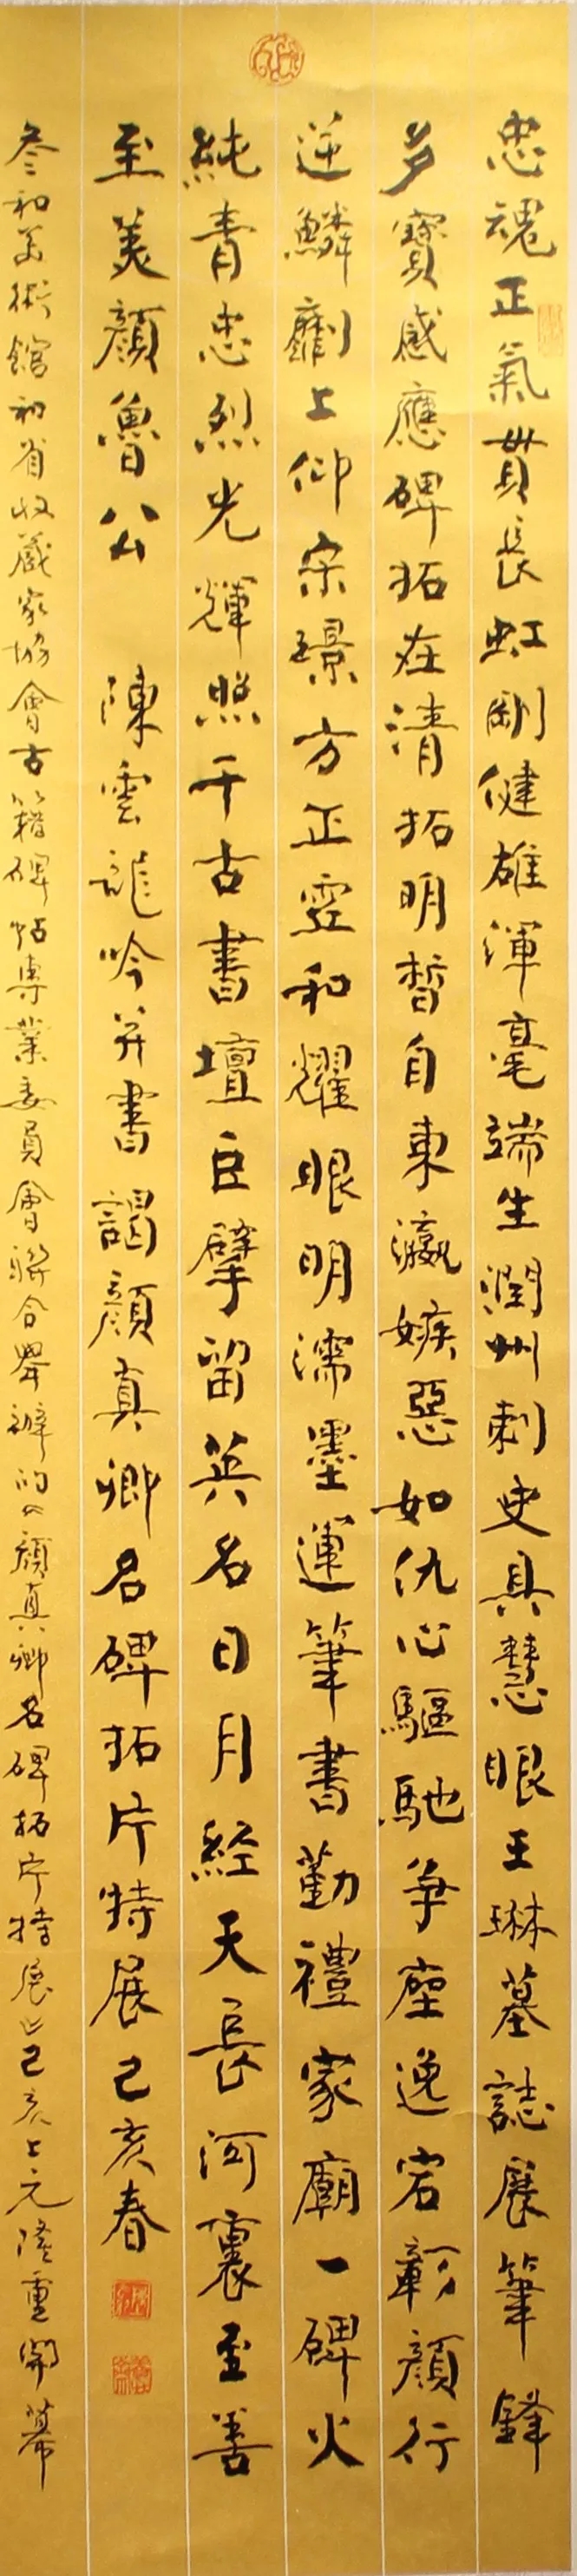 忠魂正氣貫長虹剛健雄渾毫端生潤州刺史具慧眼王琳墓誌展筆鋒
多寶感應碑拓在清拓明晳自東瀛嫉惡如仇心驅馳爭座逸宕彰顏行
逆鱗劘上仰宗璟方正雍和耀眼明濡墨運筆書勤禮家廟一碑火
純青忠烈光輝照千古書壇巨擘留英名日月經天長河裏至善
至美顏魯公 陳雲龍吟并書謁顏真卿名碑拓片特展己亥春
叄和美術館和省收藏家協會古籍碑帖專業委員會聯合舉辦的顏真卿名碑拓片特展己亥上元隆重開幕